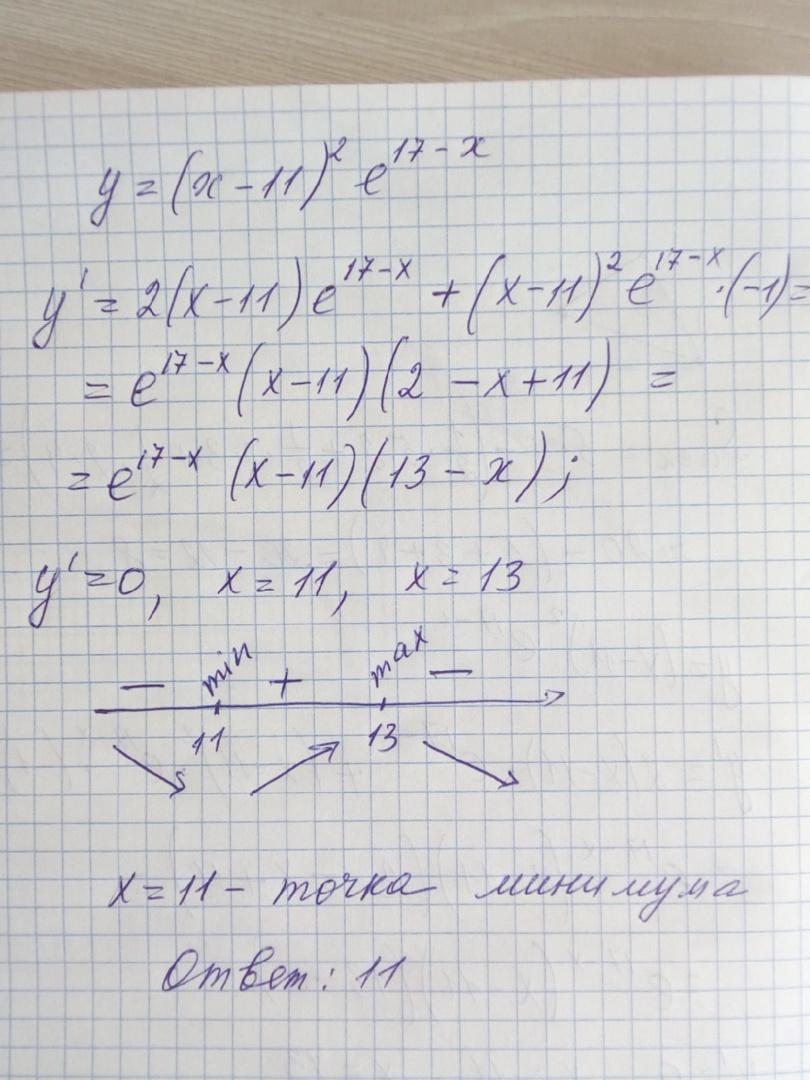 y = (x - 11)² e^{17 - x}
y' = 2(x - 11) e^{17-x} + (x - 11)² e^{17-x} · (-1) =
= e^{17-x} (x - 11)(2 - x + 11) =
= e^{17-x} (x - 11)(13 - x);
y' = 0, x = 11, x = 13
— min + max —
11 13
x = 11 - точка минимума
Ответ: 11